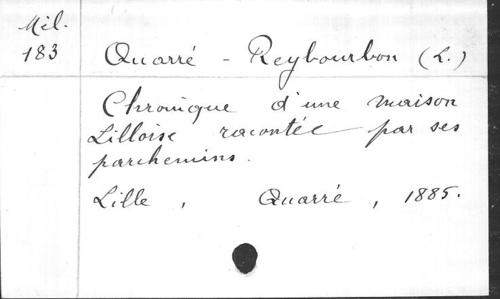 Mil.
183
Quarré - Reybourbon (L.)
Chronique d'une maison
Lilloise racontée par ses
parchemins.
Lille, Quarré, 1885.